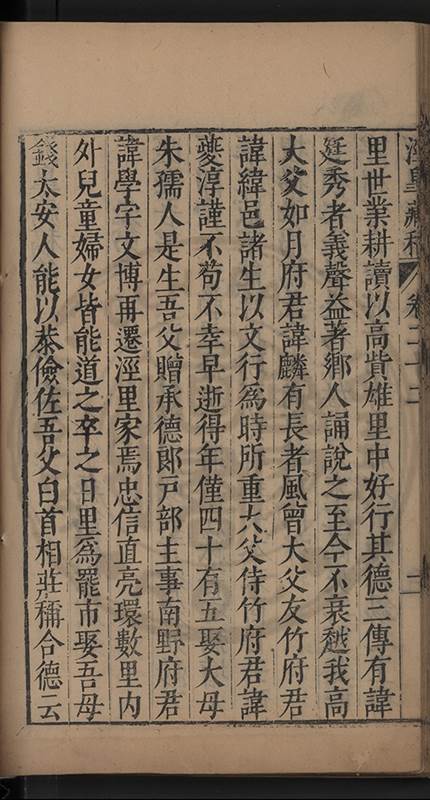 涇臯藏稿 卷二十二
里世業耕讀以高貲雄里中好行其德三傳有諱
廷秀者義聲益著鄉人誦說之至今不衰越我高
大父如月府君諱麟有長者風曾大父友竹府君
諱緯邑諸生以文行為時所重大父侍竹府君諱
夔淳謹不苟不幸早逝得年僅四十有五娶大母
朱孺人是生吾父贈承德郎戸部主事南野府君
諱學字文博再遷涇里家焉忠信直亮環數里内
外兒童婦女皆能道之卒之日里為罷市娶吾母
錢太安人能以恭儉佐吾父白首相莊稱合德云